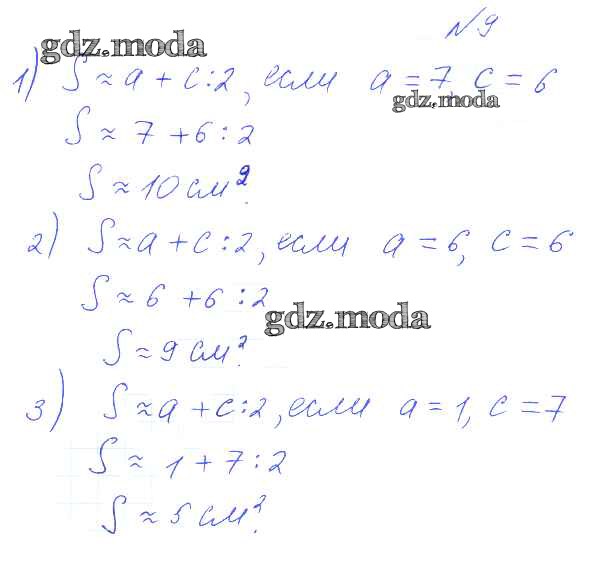 №9
gdz.moda
1) S ≈ a + c : 2, если a = 7, c = 6
gdz.moda
S ≈ 7 + 6 : 2
S ≈ 10 см².
2) S ≈ a + c : 2, если a = 6, c = 6
S ≈ 6 + 6 : 2
gdz.moda
S ≈ 9 см².
3) S ≈ a + c : 2, если a = 1, c = 7
S ≈ 1 + 7 : 2
S ≈ 5 см².